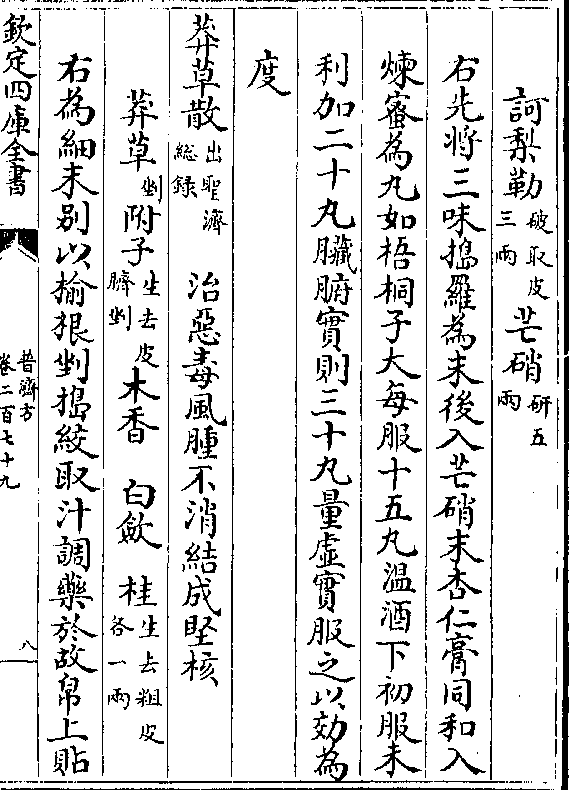 訶梨勒破取皮三兩 芒硝研五兩
右先將三味搗羅為末後入芒硝末杏仁膏同和入
煉蜜為丸如梧桐子大每服十五丸温酒下初服未
利加二十丸臟腑實則三十丸量虚實服之以効為
度
莽草散出聖濟総録 治惡毒風腫不消結成堅核
莽草剉 附子生去皮臍剉 木香 白歛 桂生去粗皮各一兩
右為細末别以榆根剉搗絞取汁調藥於故帛上貼
欽定四庫全書
普濟方
卷二百七十九
八